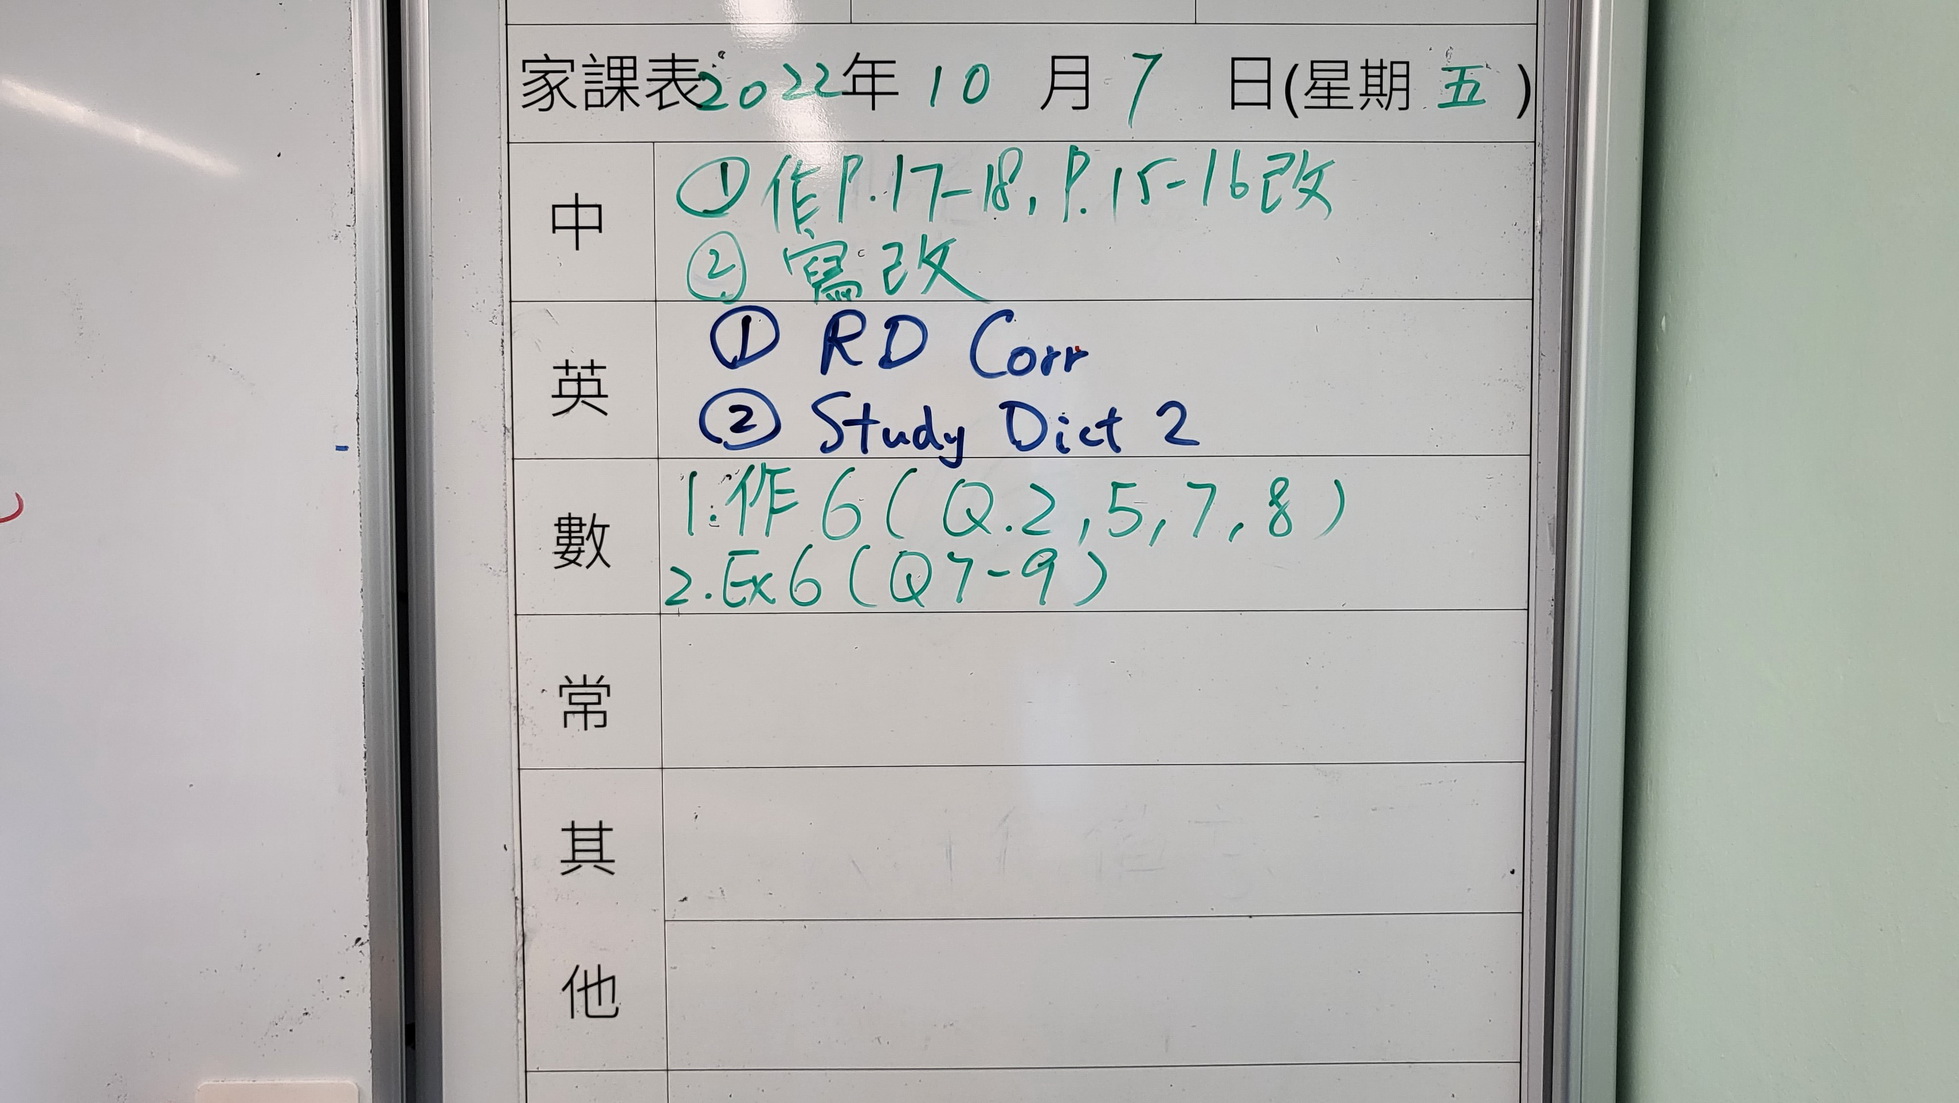 家課表 2022年 10 月 7 日(星期 五 )
中
① 作P.17-18, P.15-16改
② 寫改
英
① RD Corr
② Study Dict 2
數
1. 作6 (Q.2, 5, 7, 8)
2. Ex 6 (Q7-9)
常
其
他